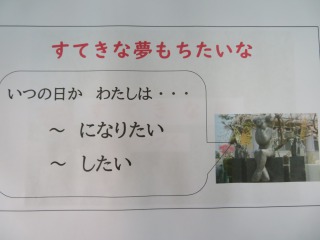 すてきな夢もちたいな
いつの日か　わたしは・・・
～　になりたい
～　したい